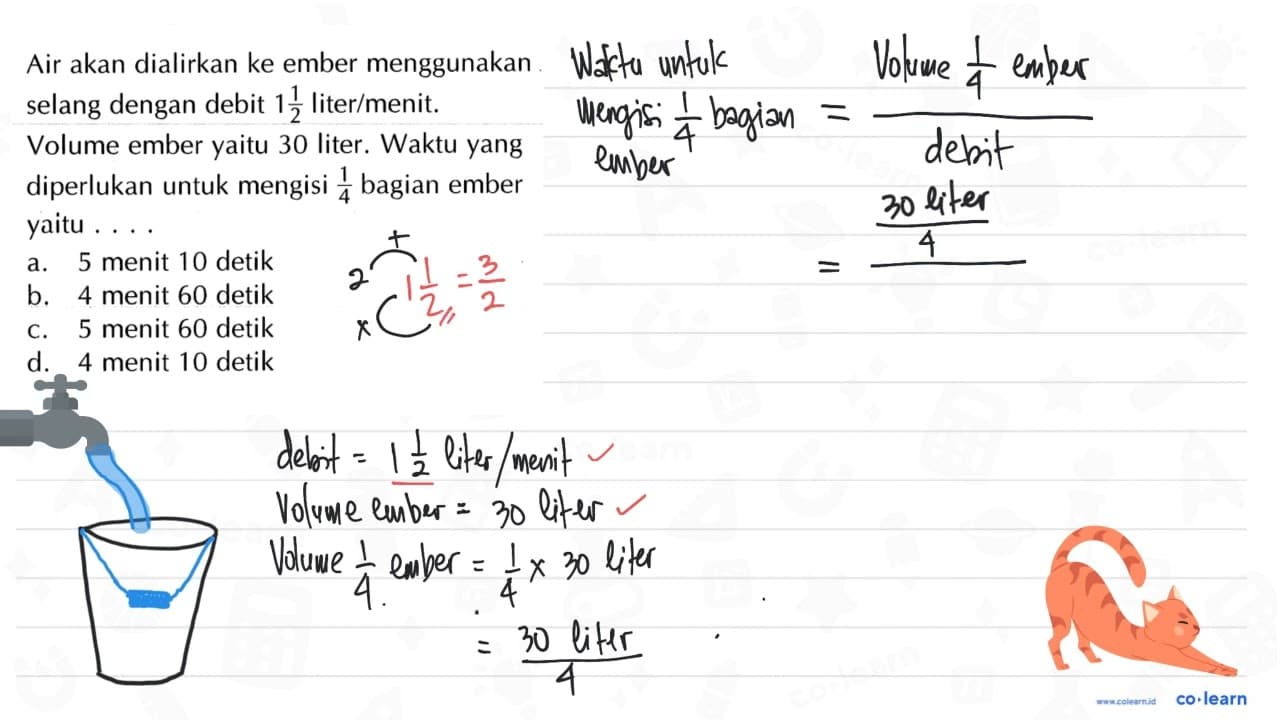 Air akan dialirkan ke ember menggunakan
selang dengan debit 1 1/2 liter/menit.
Volume ember yaitu 30 liter. Waktu yang
diperlukan untuk mengisi 1/4 bagian ember
yaitu . . . .
a. 5 menit 10 detik
b. 4 menit 60 detik
c. 5 menit 60 detik
d. 4 menit 10 detik
+
2 1 1/2 = 3/2
x
Waktu untuk
mengisi 1/4 bagian
ember
= Volume 1/4 ember
debit
= 30 liter
4
debit = 1 1/2 liter/menit ✓
Volume ember = 30 liter ✓
Volume 1/4 ember = 1/4 x 30 liter
= 30 liter
4
www.colearn.id co·learn